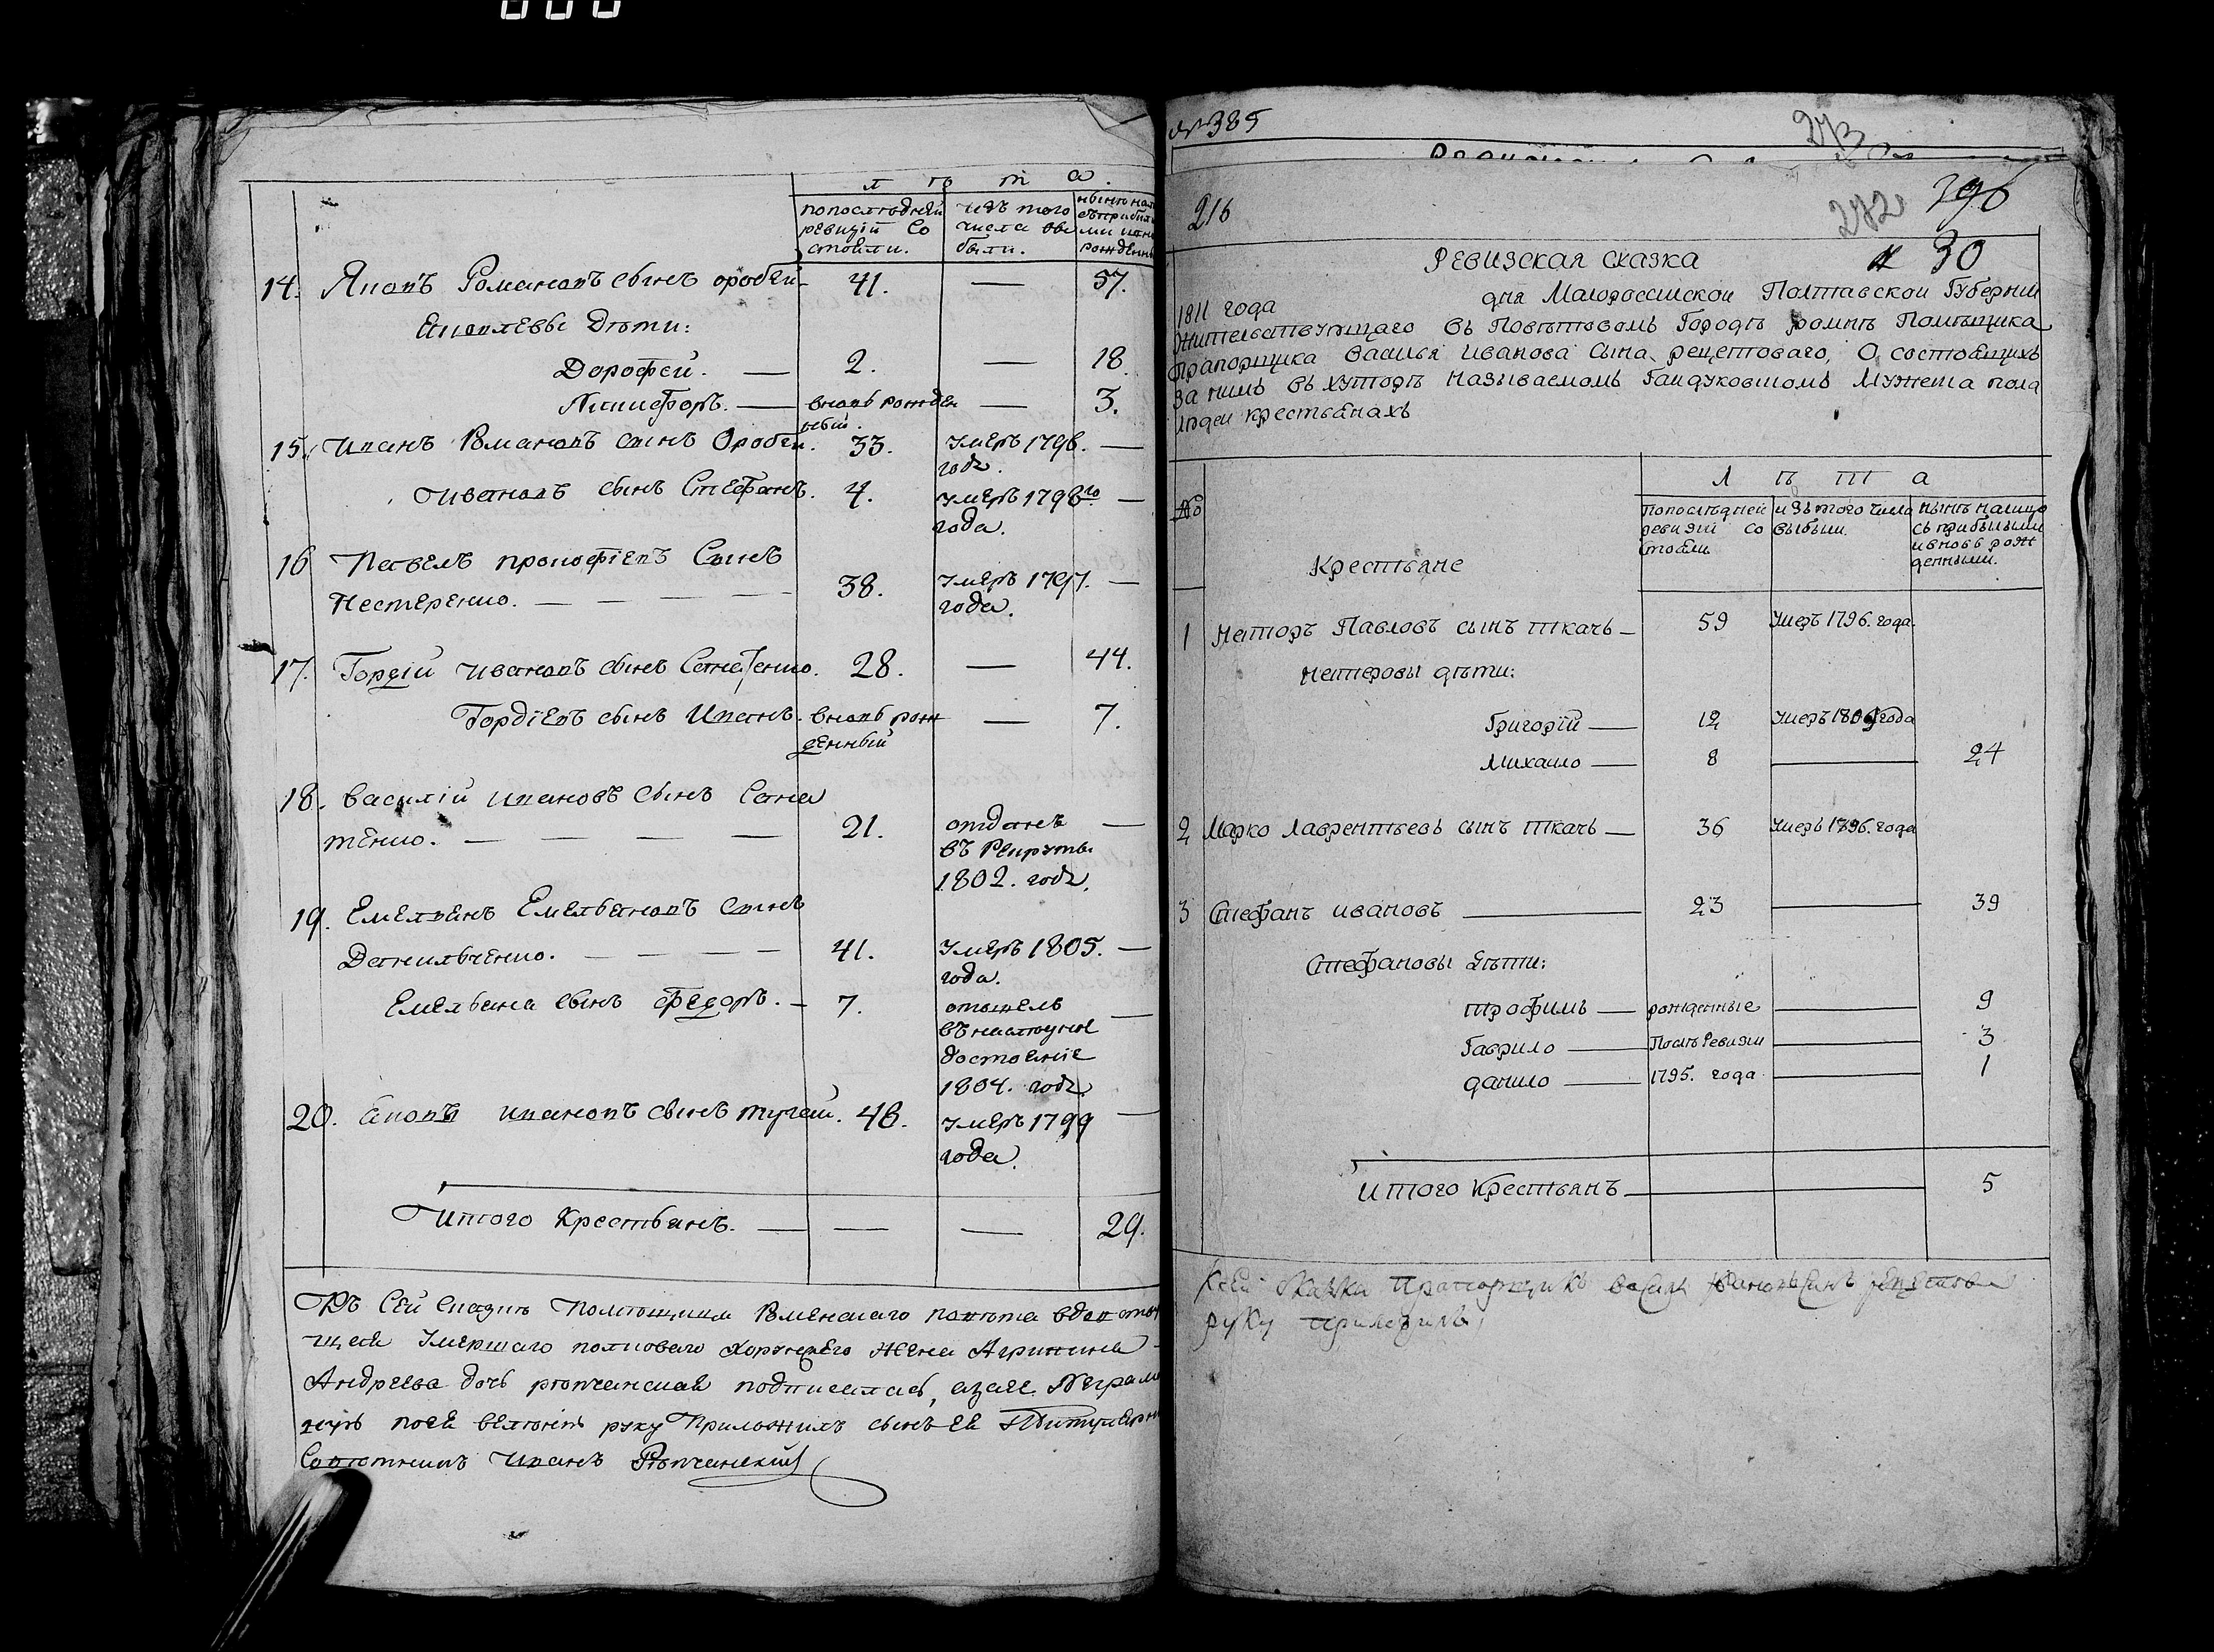 л ѣ т а.
попослѣдней
ревизіи со
стояли.
изъ того
числа вы
были.
нынѣ нали
съ прибыл
ми и вно
рожденн
14. Яковъ Романовъ сынъ оробей 41. — 57.
Яковлевы дѣти:
Дорофей. — 2. — 18.
Никифоръ. — вновь рожден — 3.
ный.
15. Иванъ Романовъ сынъ Оробей. 33. Умеръ 1796. —
году.
Ивановъ сынъ Стефанъ. 4. Умеръ 1796го —
года.
16 Павелъ прокофіевъ Сынъ
Нестеренко. — — — — 38. Умеръ 1797. —
года.
17. Гордій Ивановъ сынъ Сененко. 28. — 44.
Гордіевъ сынъ Иванъ. вновь рож — 7.
денный
18. Василій ивановъ сынъ Сене
тенко. — — — — 21. отданъ —
въ Рекруты
1802. году.
19. Емельянъ Емельяновъ сынъ
Данильченко. — — — — 41. Умеръ 1805. —
года.
Емельяна сынъ Федоръ. — 7. отышелъ —
въ
достояніе
1804. году
20. Яковъ ивановъ сынъ тугай. 46. Умеръ 1799 —
года.
Итого Крестьянъ. — — — 29.
Къ Сей Сказкѣ Помѣщица Роменскаго повѣта вдовству
щая Умершаго полковаго Хорунжего жена Агрипина
Андреева дочь подписалась, азаее Неграмо
ея велѣнію руку Приложилъ сынъ ея Титуляр
Совѣтникъ Иванъ
№385
273
216
272 296
Ревизская сказка № 30
1811 года дня Малороссиской Полтавской Губернии
Жительствующаго въ Повѣтовомъ Городѣ ромнѣ Помѣщика
Прапорщика Василья Иванова Сына рецептоваго, О состоящихъ
За нимъ въ хуторѣ называемомъ Гайдуковшомъ Мужеска пола
людей крестьянахъ
№
Крестьяне
Л ѣ т а
Попослѣдней
ревизіи со
стояли
изъ того числа
выбыли.
нынѣ налицо
съ прибылыми
ивновь рож
денными.
1 Несторъ Павловъ сынъ ткачь — 59 Умеръ 1796. года.
Нестеровы дѣти:
Григорій — 12 Умеръ 1806 года
Михаило — 8 — 24
2 Марко Лаврентьевъ сынъ ткачь — 36 Умеръ 1796. года
3 Стефанъ ивановъ — 23 — 39
Стефановы дѣти:
трофимъ — рожденные — 9
Гаврило — Послѣ Ревизіи — 3
данило — 1795. года — 1
Итого Крестьянъ — 5
Ксей сказки Прапорщикъ васили Ивановъ синъ
руку приложилъ